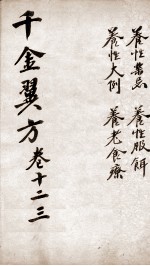 養性禁忌 養性服餌
養性大例 養老食療
千金翼方 卷十二三